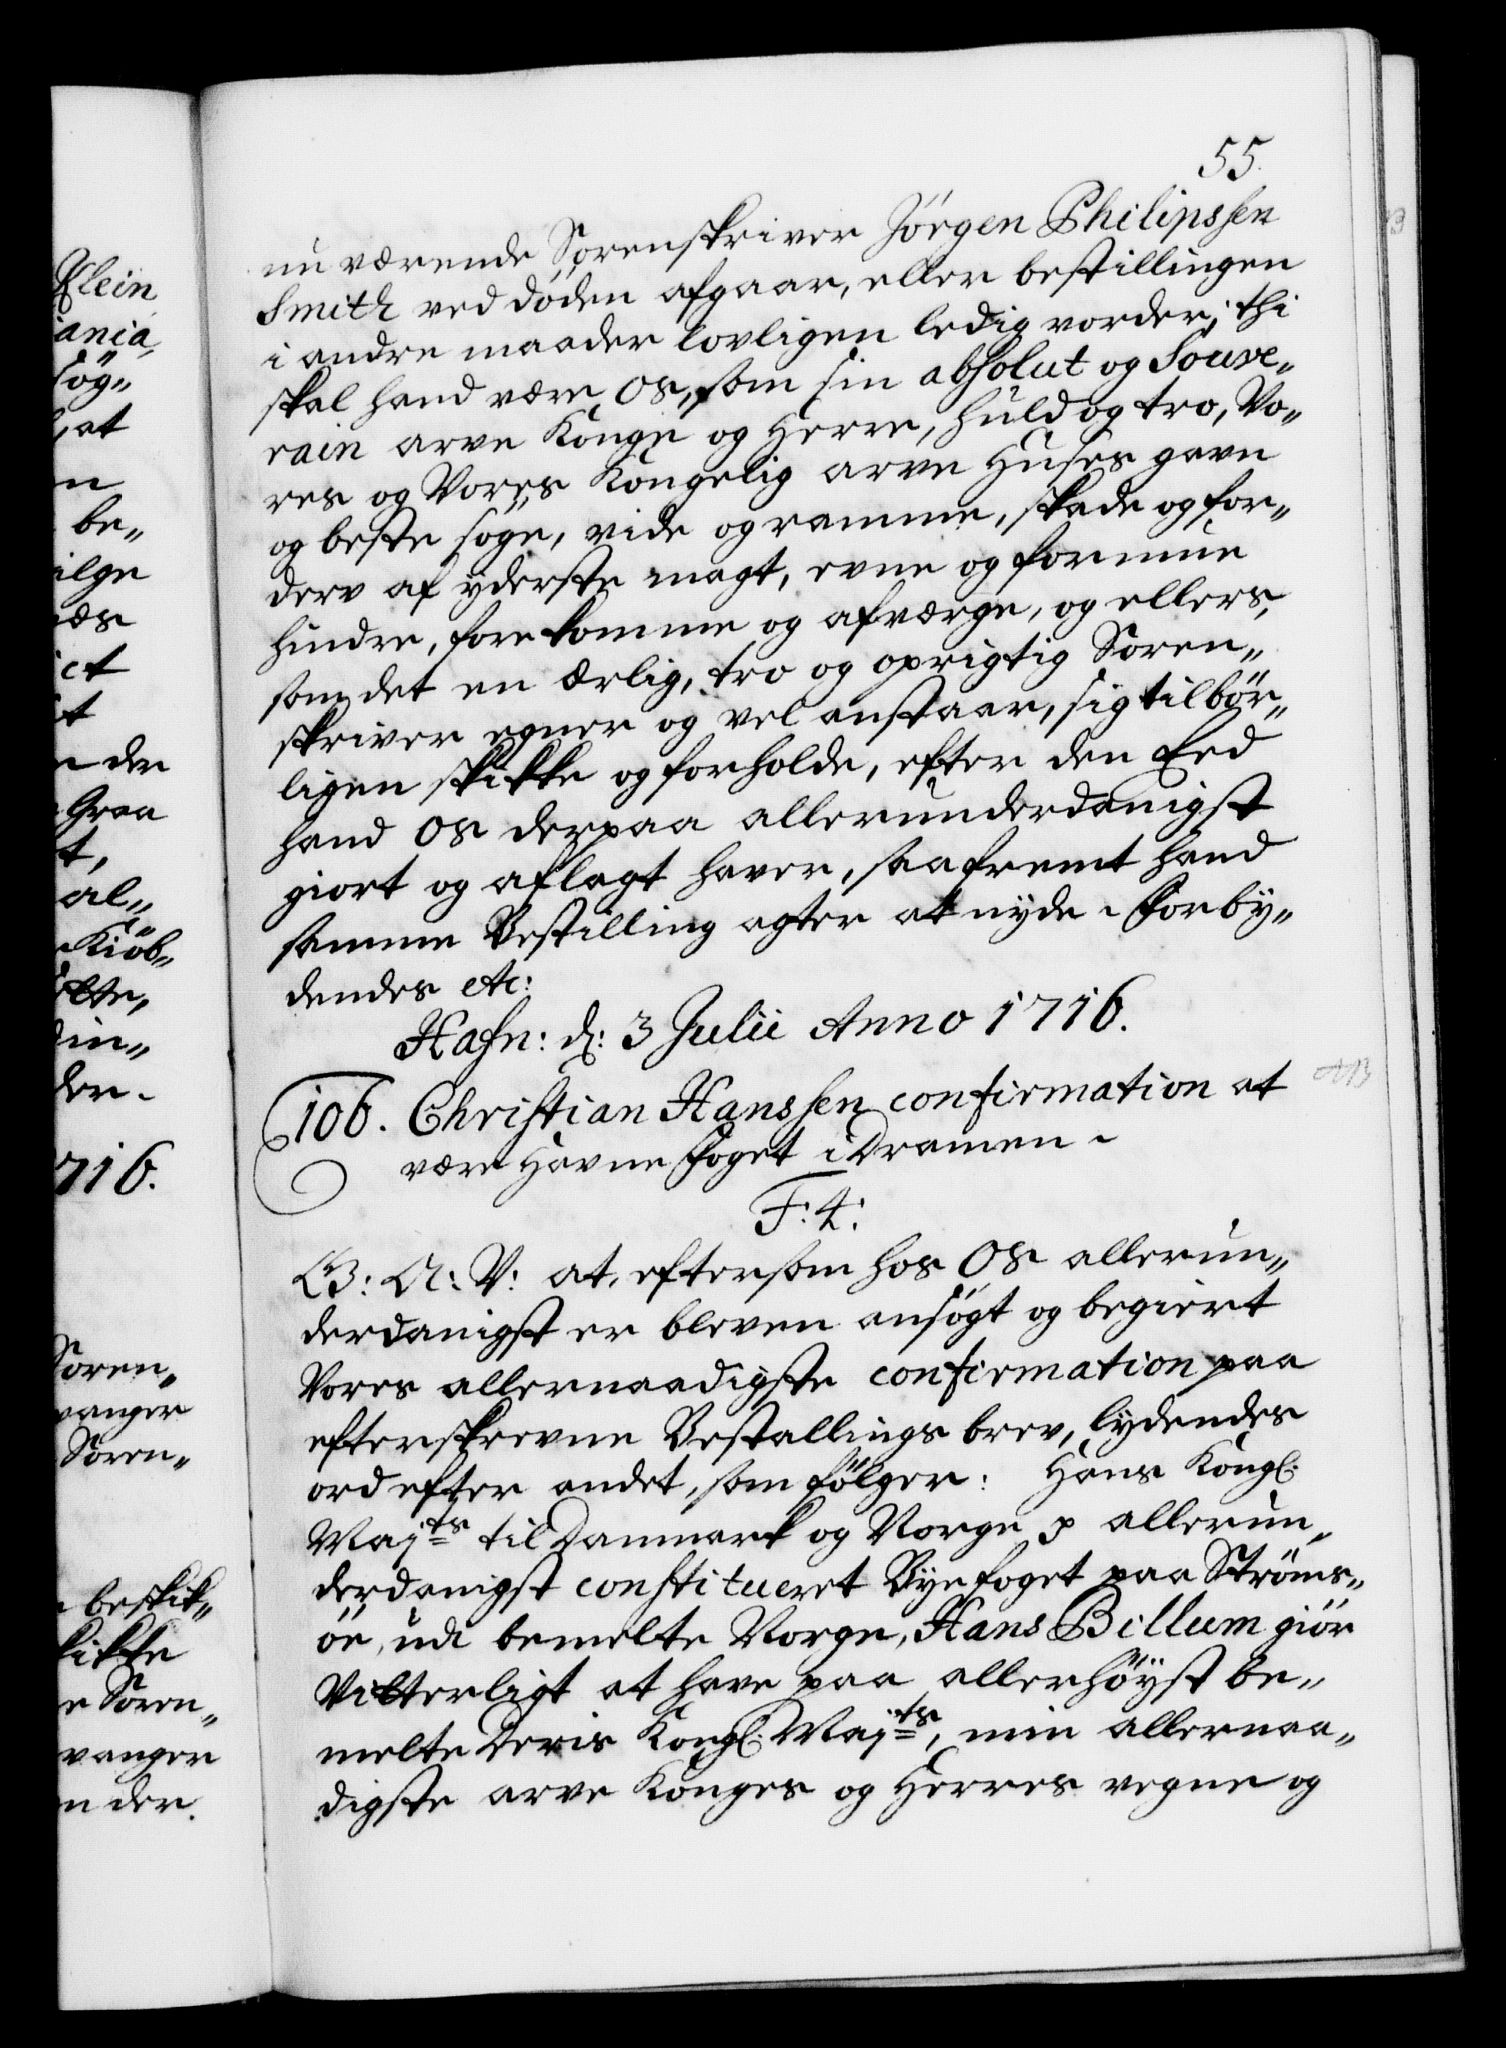 55.
nu værende Sorenskriver Jörgen Philipssen
Smith ved döden afgaar, eller bestillingen
i andre maader lovligen ledig vorder; thi
skal hand være Os, som sin absolut og Souve„
rain arve Konge og Herre, huld og tro, Vo„
res og Vores Kongelig arve Huses gavn
og beste söge, vide og ramme, skade og for„
derv af yderste magt, evne og formue
hindre, forekomme og afværge, og ellers,
som det en ærlig, tro og oprigtig Soren„
skriver egner og vel anstaar, sig tilbör„
ligen skikke og forholde, efter den Eed
hand Os derpaa allerunderdanigst
giort og aflagt haver, saafremt hand
samme Bestilling agter at nyde. Forby„
dendes etc:
Hafn: d: 3 Julii Anno 1716.
106. Christian Hanssen confirmation at
være Havne Foget i Dramen.
F: 4:
G: A: V: at, eftersom hos Os allerun„
derdanigst er bleven ansögt og begiert
Vores allernaadigste confirmation paa
efterskrevne Bestallings brev, lydendes
ord efter andet, som fölger: Hans Kongl.
Majts til Danmark og Norge p allerun„
derdanigst constitueret Byefoget paa Ströms„
öe, udi bemelte Norge, Hans Billum giör
Vitterligt at have paa allerhöyst be„
melte Deris Kongl. Majts, min allernaa„
digste arve Konges og Herres vegne og
Klein
iania,
sög„
at
n
be„
ilge
næs
ict
t
n der
Graa
t,
al„
Kiöb„
lte,
din„
der.
716.
Soren„
vanger
Soren„
beskik„
kikke
e Soren„
vanger
n der.